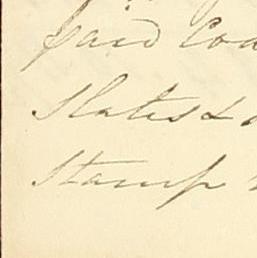 paid Coa
Slates &
Stamp